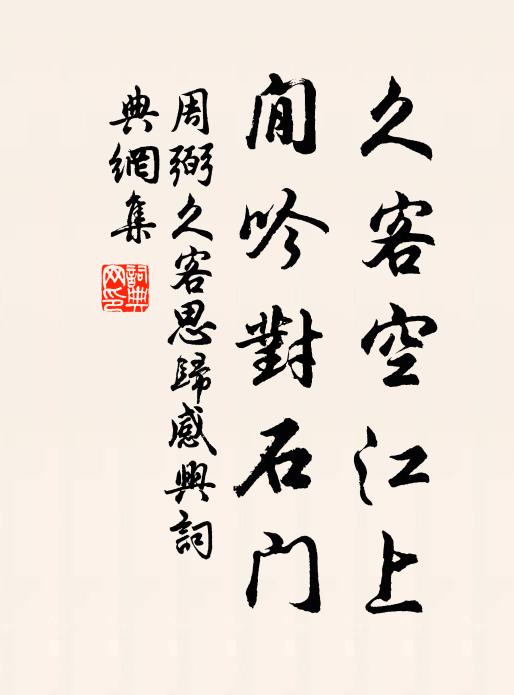 久客空江上
閒吟對石门
周弼久客思歸感興詞
典網集
詞典网印